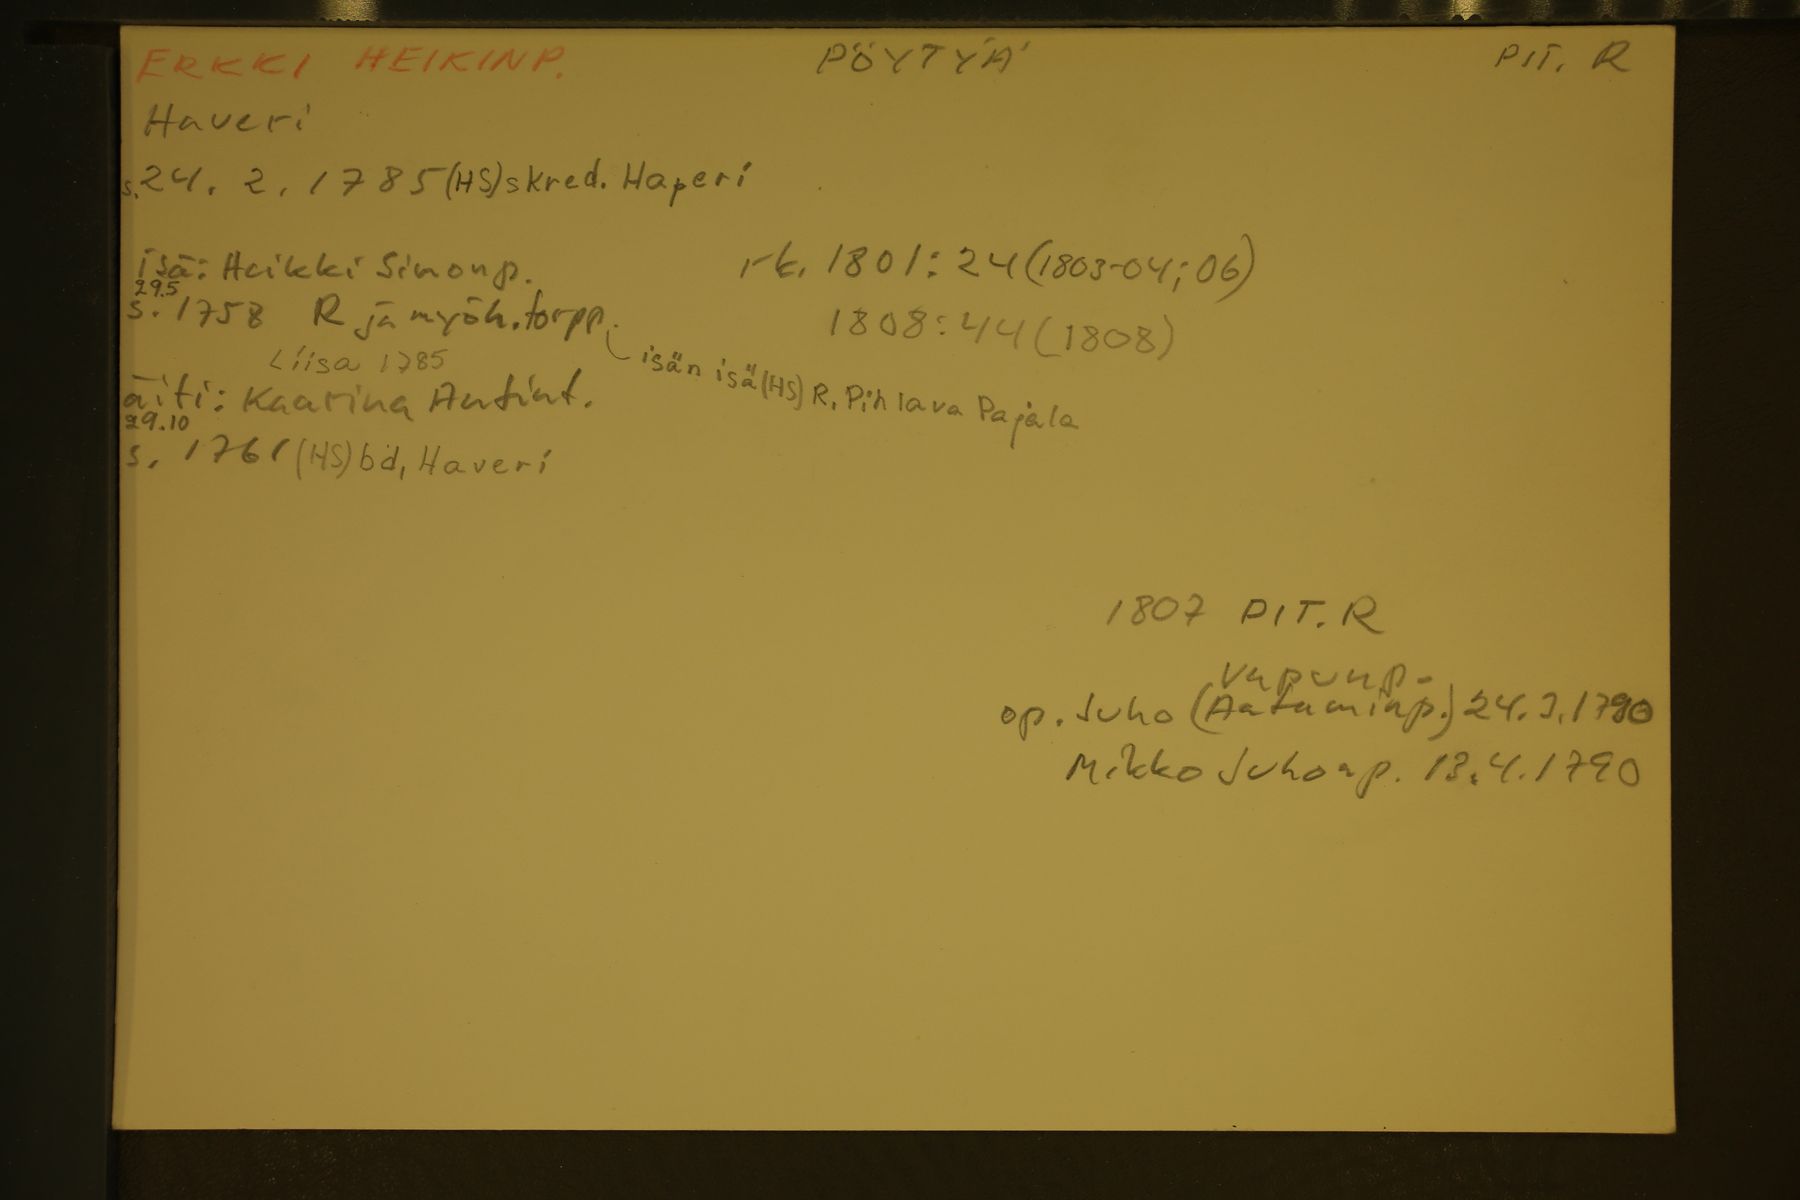 ERKKI HEIKINP. PÖYTYÄ PIT. R
Haveri
s. 24. 2. 1785 (HS) skred. Haperi
isä: Heikki Simonp. rk. 1801: 24 (1803-04; 06)
29.5
s. 1758 R ja myöh. torpp. 1808: 44 (1808)
isän isä (HS) R. Pihlava Pajala
Liisa 1785
äiti: Kaarina Antint.
29.10
s. 1761 (HS) bd, Haveri
1807 PIT. R
Vapunp.
op. Juho (Aataminp.) 24.3.1790
Mikko Juhonp. 13.4.1790